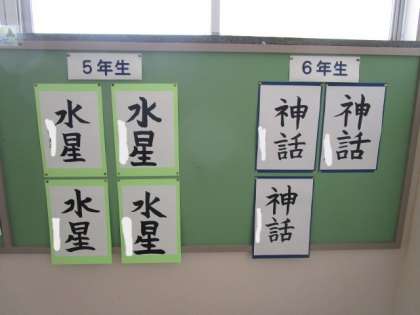 5年生
水星
水星
水星
水星
6年生
神話
神話
神話